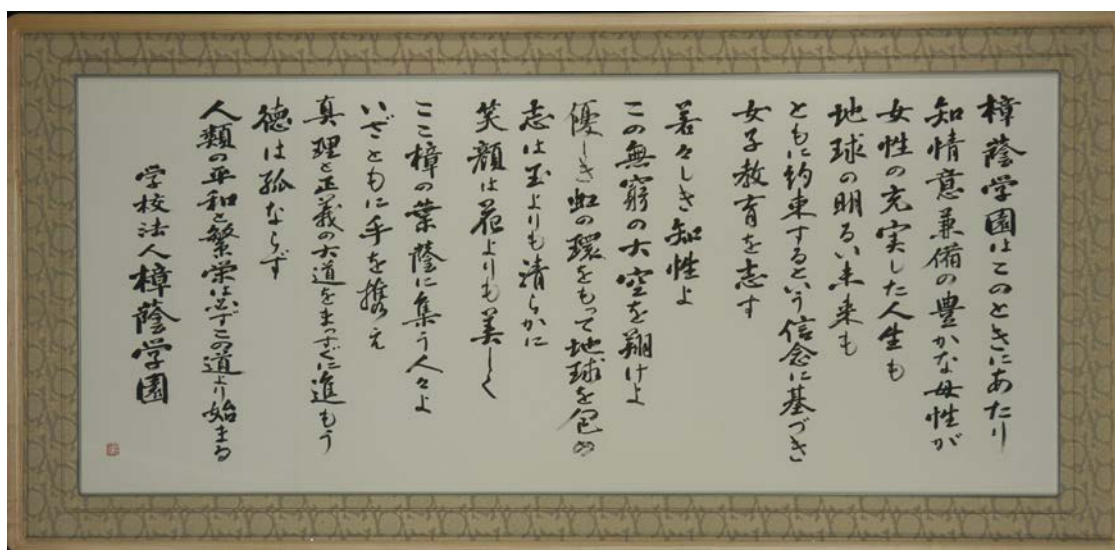 樟蔭学園はこのときにあたり
知情意兼備の豊かな母性が
女性の充実した人生も
地球の明るい未来も
ともに約束するという信念に基づき
女子教育を志す
若々しき知性よ
この無窮の大空を翔けよ
優しき虹の環をもって地球を包め
志は玉よりも清らかに
笑顔は花よりも美しく
ここ樟の葉蔭に集う人々よ
いざともに手を携え
真理と正義の大道をまっすぐに進もう
徳は孤ならず
人類の平和と繁栄は必ずこの道より始まる
学校法人樟蔭学園